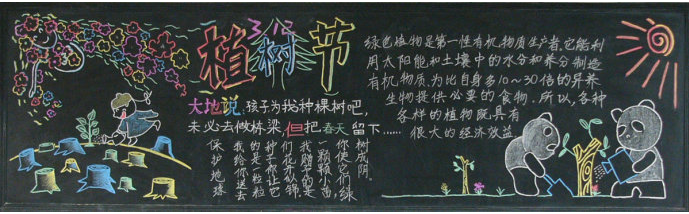 3.12
植树节
大地说:孩子为我种棵树吧,
未必去做栋梁,但把春天留下……
保护地球
我给你送去
的是一粒粒
种子你让它
们花亦锦
我赠予的是
一颗颗小苗
你使它们绿
树成阴.
绿色植物是第一性有机物质生产者,它能利
用太阳能和土壤中的水分和养分制造
有机物质,为比自身多10~30倍的异养
生物提供必要的食物,所以,各种
各样的植物既具有
很大的经济效益